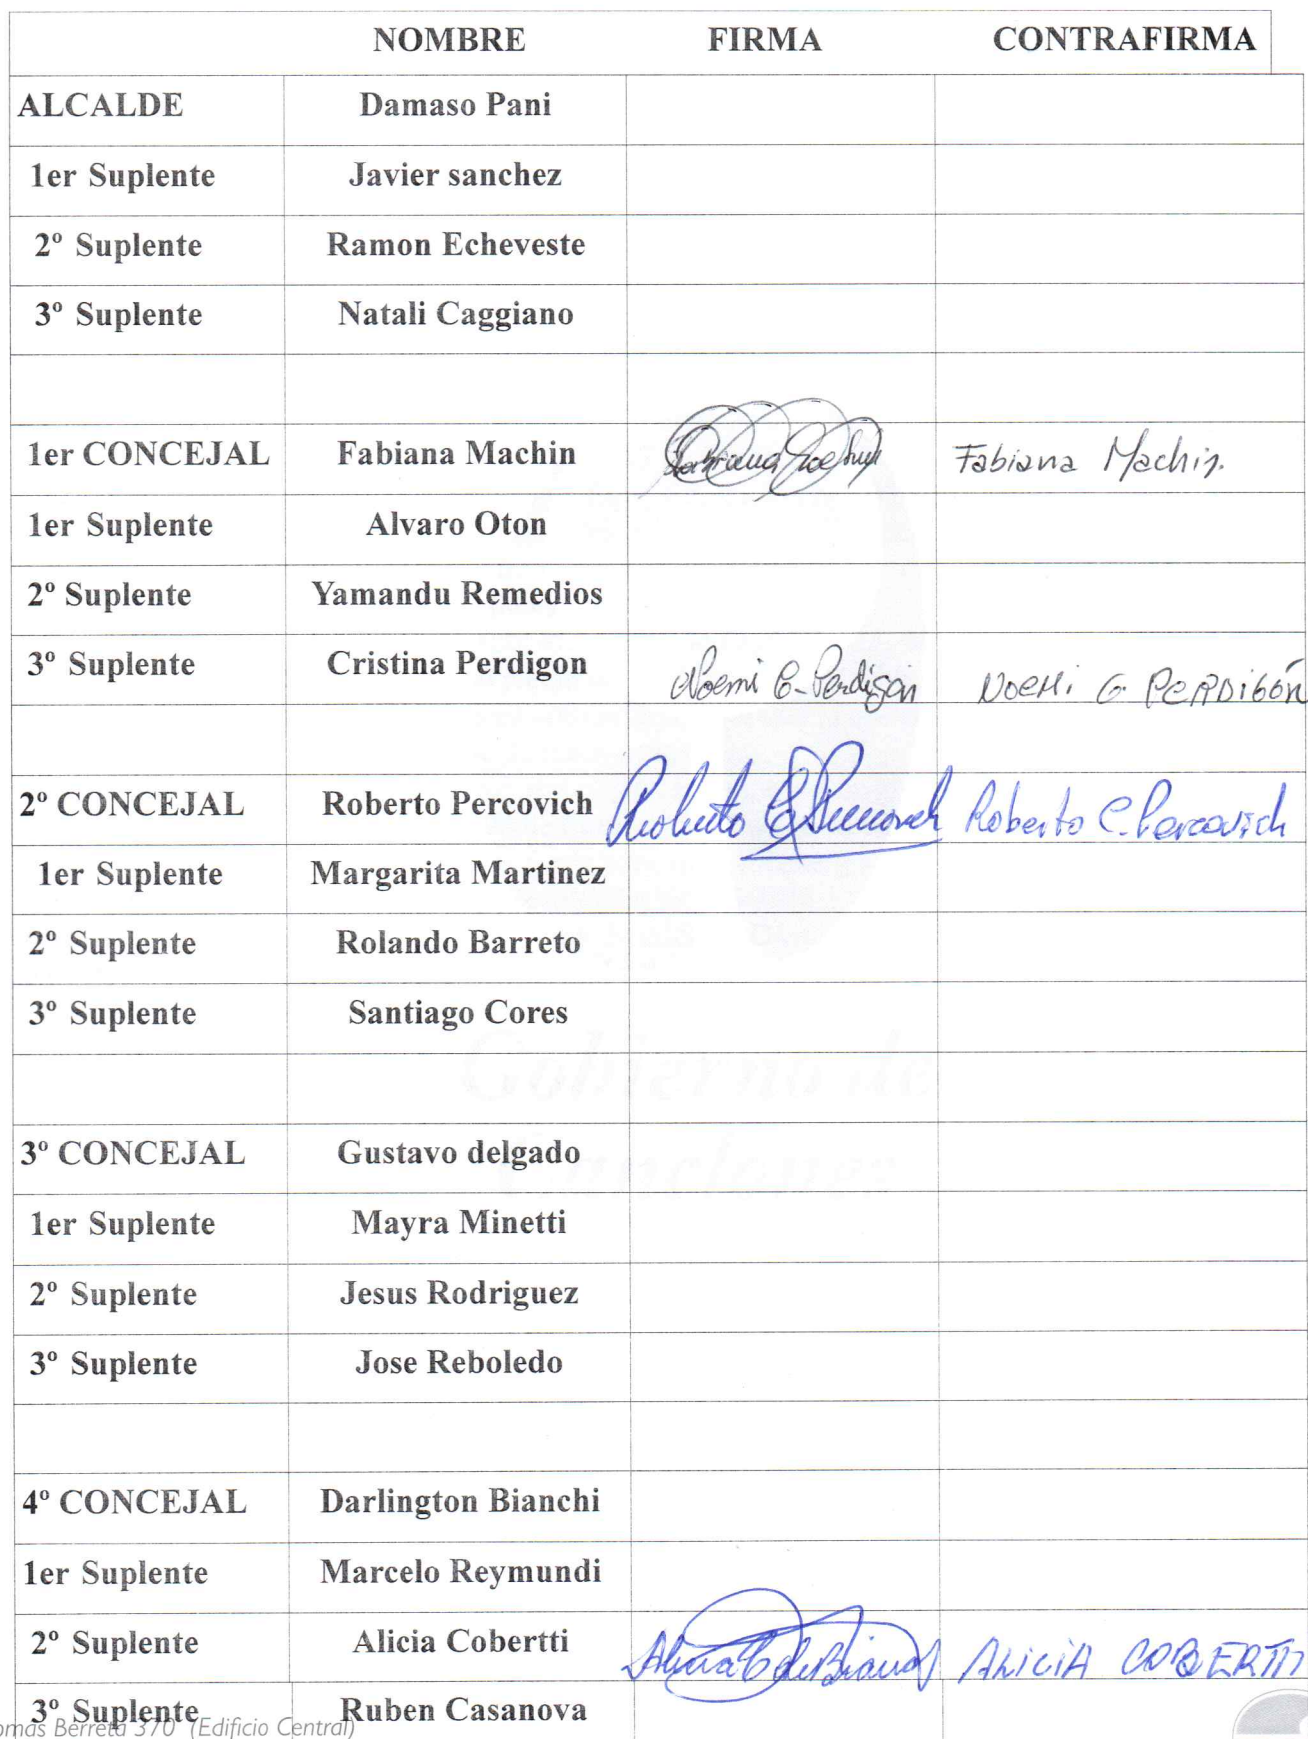 NOMBRE FIRMA CONTRAFIRMA
ALCALDE Damaso Pani
1er Suplente Javier sanchez
2º Suplente Ramon Echeveste
3º Suplente Natali Caggiano
1er CONCEJAL Fabiana Machin Fabiana Machin.
1er Suplente Alvaro Oton
2º Suplente Yamandu Remedios
3º Suplente Cristina Perdigon Noemi C. Perdigón NOEMI C. PERDIGÓN
2º CONCEJAL Roberto Percovich Roberto C. Percovich Roberto C. Percovich
1er Suplente Margarita Martinez
2º Suplente Rolando Barreto
3º Suplente Santiago Cores
Gobierno de
3º CONCEJAL Gustavo delgado
Canelones
1er Suplente Mayra Minetti
2º Suplente Jesus Rodriguez
3º Suplente Jose Reboledo
4º CONCEJAL Darlington Bianchi
1er Suplente Marcelo Reymundi
2º Suplente Alicia Cobertti Alicia C de Bianchi ALICIA COBERTTI
3º Suplente Ruben Casanova
omás Berreta 370 (Edificio Central)